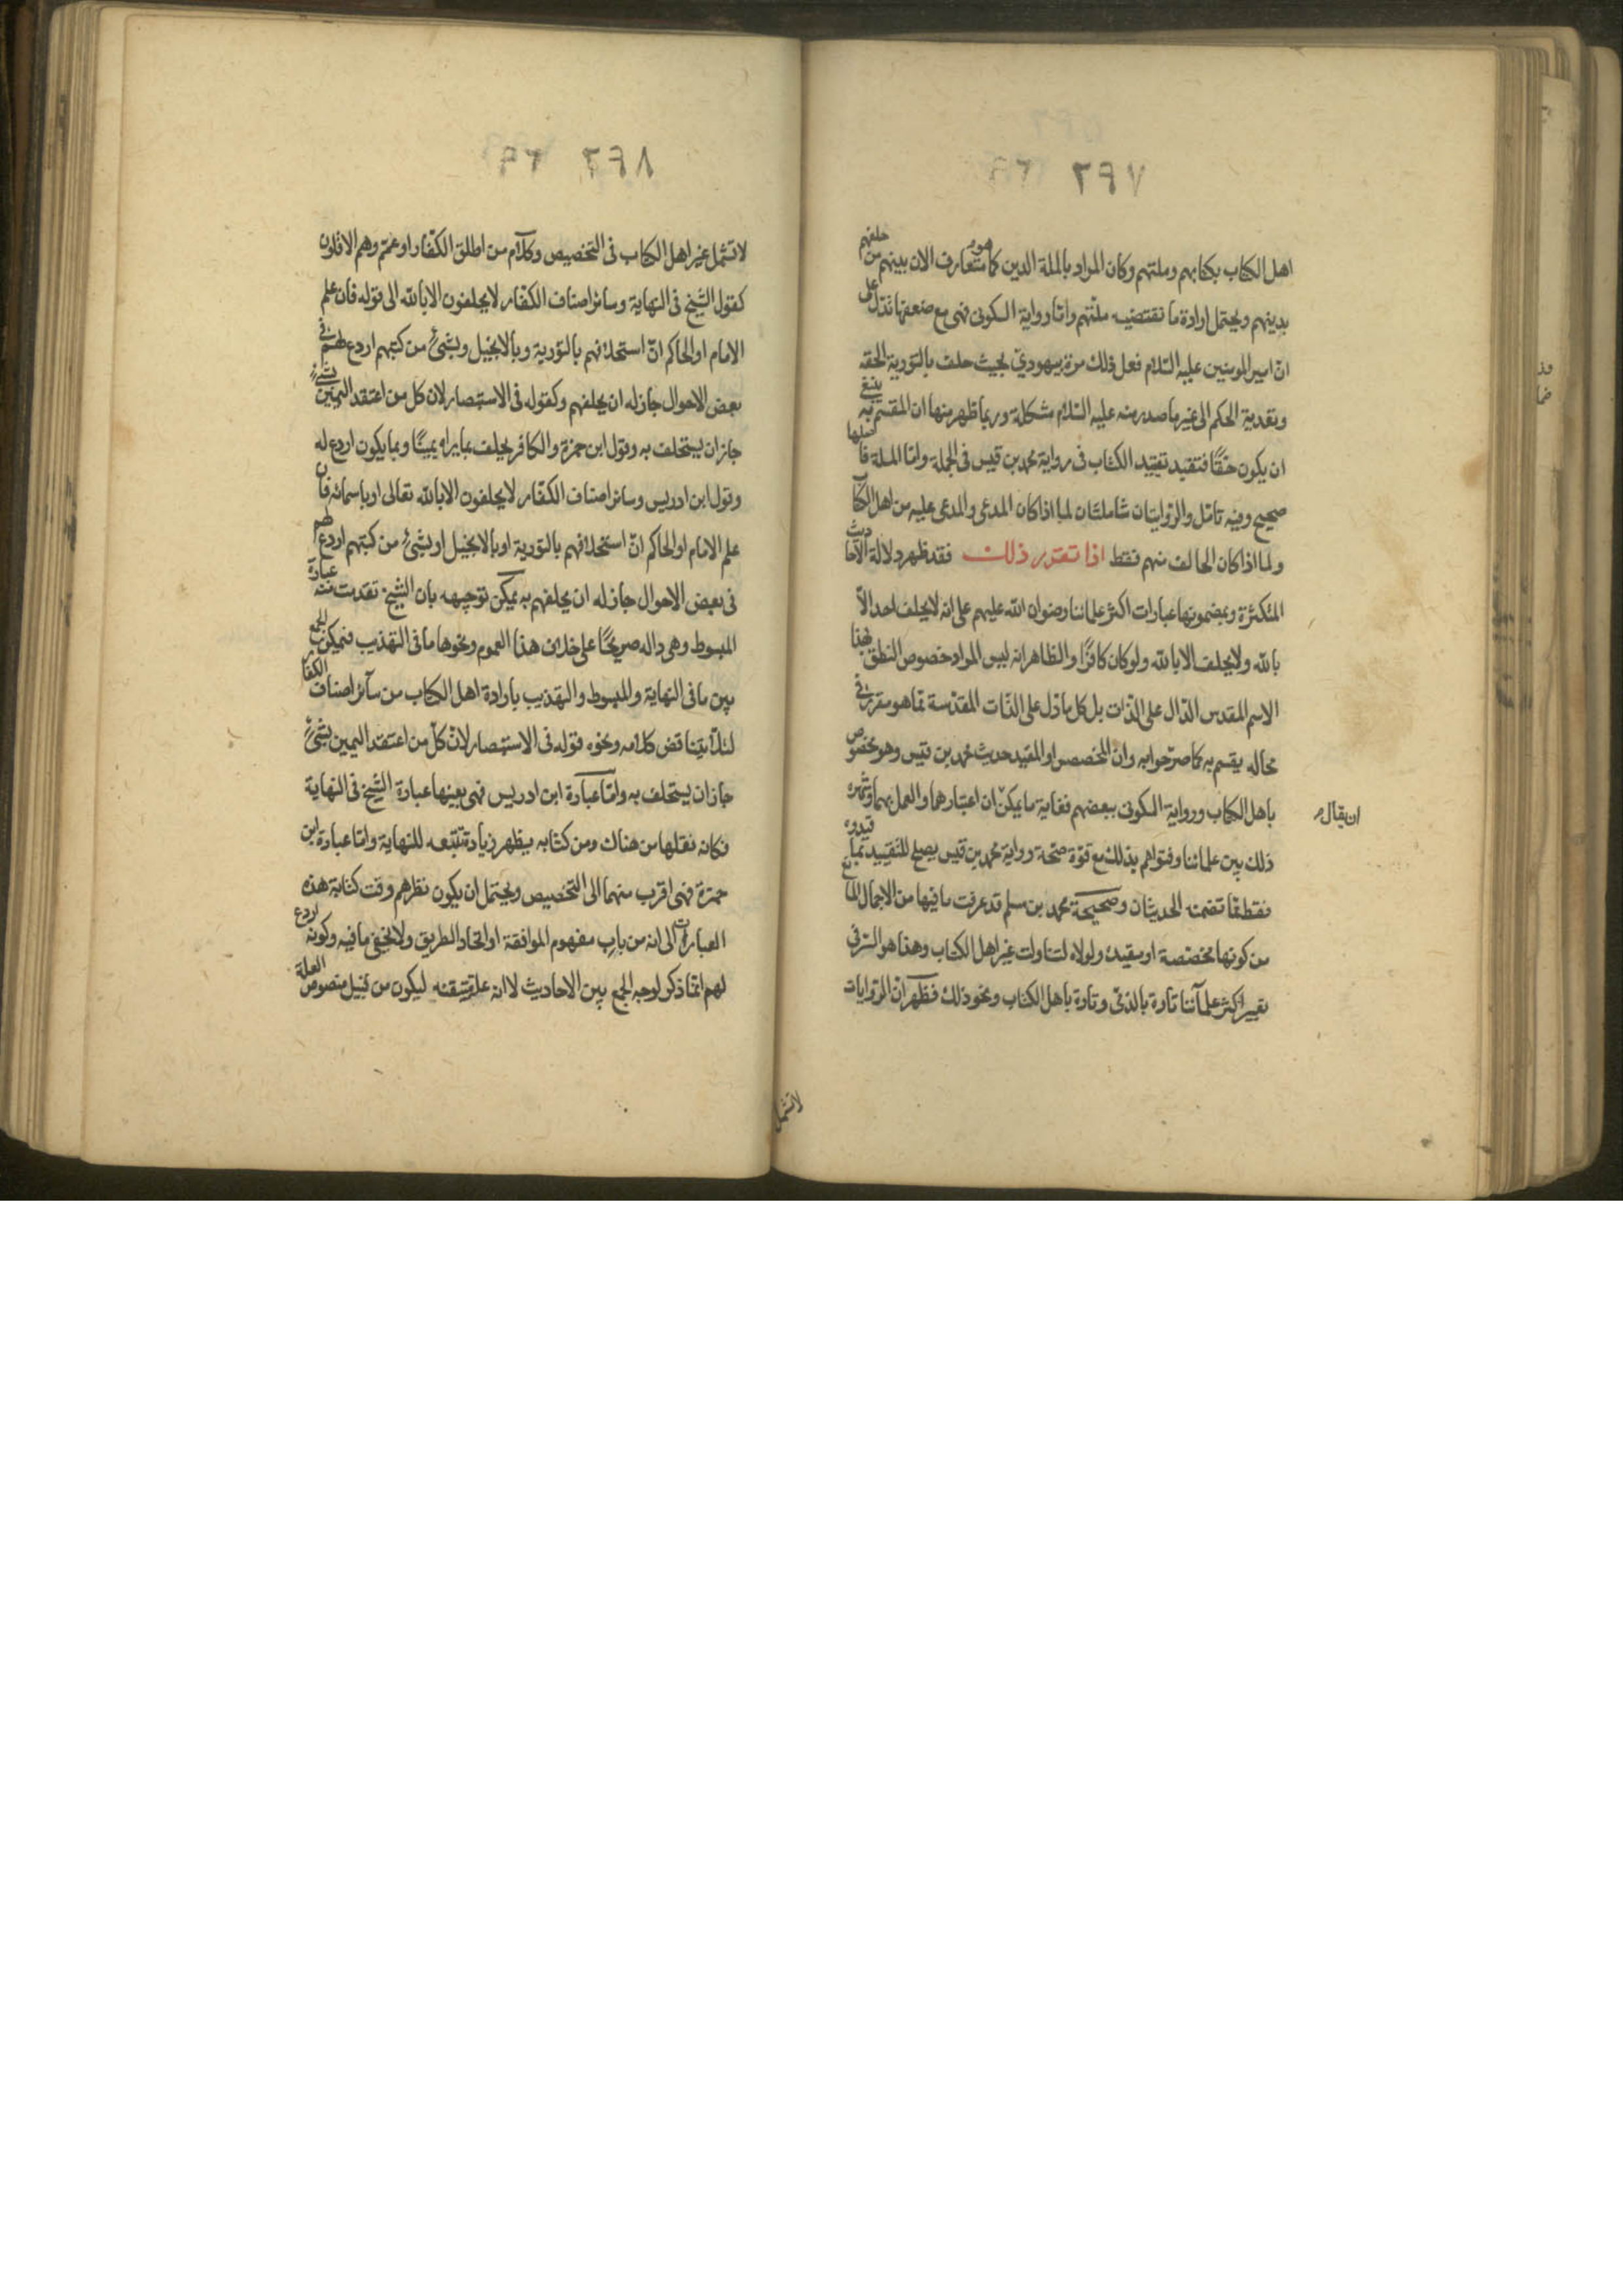 ٢٩٧
اهل الكتاب بكتابهم وملتهم وكان المراد بالملة الدين كما هو متعارف الان بينهم من حلفهم
بدينهم ويحتمل ارادة ما تقتضيه ملتهم واما رواية السكونى فهى مع ضعفها تدل على
ان امير المومنين عليه السلام فعل ذلك مرة بيهودي بحيث حلف بالتورية الحقه
وتعدية الحكم الى غير ما صدر منه عليه السلام مشكلة وربما ظهر منها ان المقسم به ينبغى
ان يكون حقا فتقيد تقييد الكتاب فى رواية محمد بن قيس فى الجملة واما الملة فا
صحيح وفيه تامل والروايتان شاملتان لما اذا كان المدعى والمدعى عليه من اهل الكتاب
ولما اذا كان الحالف منهم فقط اذا تقرر ذلك فقد ظهر دلالة الاحاديث
المتكثرة وبضمونها عبارات اكثر علمائنا رضوان الله عليهم على انه لا يحلف احد الا
بالله ولا يحلف الا بالله ولو كان كافرا والظاهر انه ليس المراد خصوص النطق بهذا
الاسم المقدس الدال على الذات بل كل ما دل على الذات المقدسة مما هو مقرر فى
محاله يقسم به كما صرحوا به وان المخصص او المقيد حديث محمد بن قيس وهو مخصوص
باهل الكتاب ورواية السكونى ببعضهم فغاية ما يمكن ان اعتبارهما والعمل بهما وشهرة
ان يقال
ذلك بين علمائنا وفتواهم بذلك مع قوة صحة رواية محمد بن قيس يصلح للتقييد بما قيدوه
فقط مما تضمنه الحديثان وصحيحة محمد بن مسلم قد عرفت ما فيها من الاجمال المانع
من كونها مخصصة او مقيدة ولولاه لتناولت غير اهل الكتاب وهذا هو السر فى
تعبير اكثر علمآئنا تارة بالذمى وتارة باهل الكتاب ونحو ذلك فظهر ان الروايات
لا تشمل
٢٩٨
لا تشمل غير اهل الكتاب فى التخصيص وكلام من اطلق الكفار او عمم وهم الاقلون
كقول الشيخ فى النهاية وسائر اصناف الكفار لا يحلفون الا بالله الى قوله فان علم
الامام او الحاكم ان استحلافهم بالتورية وبالانجيل وبشئ من كتبهم اردع لهم فى
بعض الاحوال جاز له ان يحلفهم وكقوله فى الاستبصار لان كل من اعتقد اليمين بشئ
جاز ان يستحلف به وقول ابن حمزة والكافر يحلف بما يراه يمينا وبما يكون اردع له
وقول ابن ادريس وسائر اصناف الكفار لا يحلفون الا بالله تعالى او باسمائه فان
علم الامام او الحاكم ان استحلافهم بالتورية او بالانجيل او بشئ من كتبهم اردع لهم
فى بعض الاحوال جاز له ان يحلفهم به يمكن توجيهه بان الشيخ تقدمت منه عبارة
المبسوط وهى داله صريحا على خلاف هذا العموم ونحوها ما فى التهذيب فيمكن الجمع
بين ما فى النهاية والمبسوط والتهذيب بارادة اهل الكتاب من سآئر اصناف الكفار
لئلا يتناقض كلامه ونحوه قوله فى الاستبصار لان كل من اعتقد اليمين بشئ
جاز ان يستحلف به واما عبارة ابن ادريس فهى بعينها عبارة الشيخ فى النهاية
فكانه نقلها من هناك ومن كتابه يظهر زيادة تتبعه للنهاية واما عبارة ابن
حمزة فهى اقرب منهما الى التخصيص ويحتمل ان يكون نظرهم وقت كتابة هذه
العبارات الى انه من باب مفهوم الموافقة او اتحاد الطريق ولا يخفى ما فيه وكونه اردع
لهم انما ذكر لوجه الجمع بين الاحاديث لا انه علة ليكون من قبيل منصوص العلة